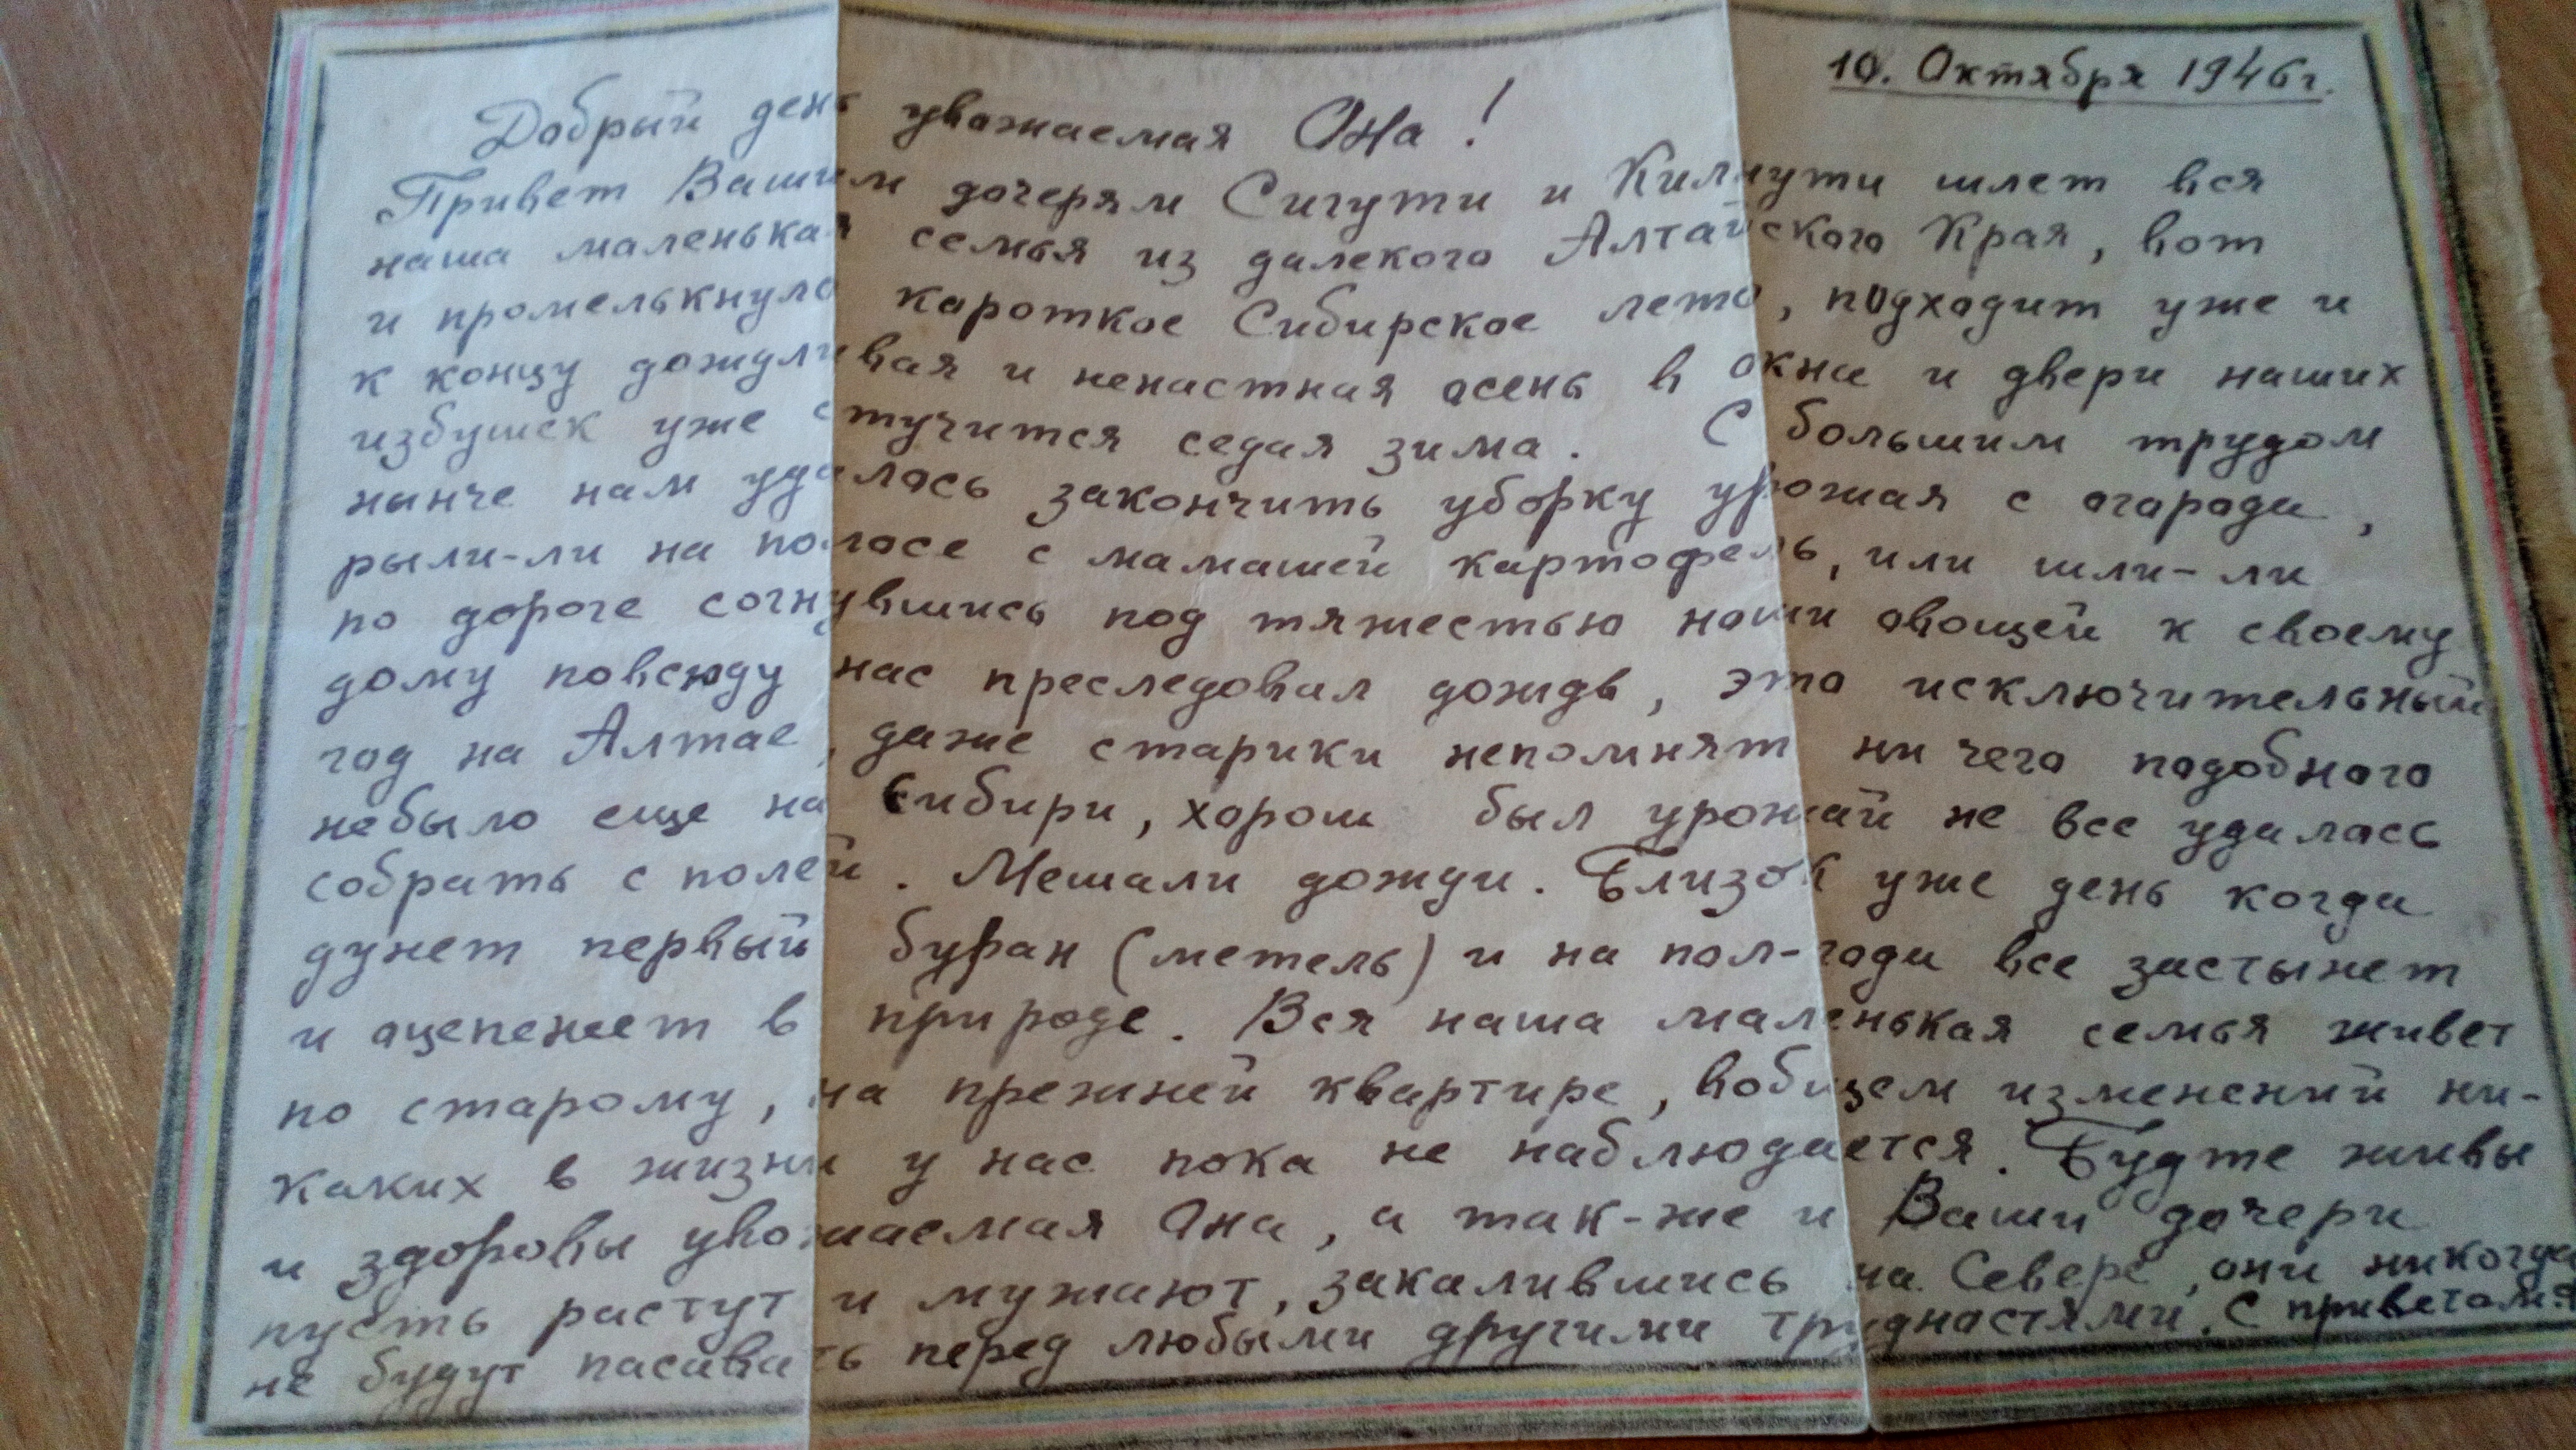 10. Октября 1946 г.
Добрый день уважаемая Она!
Привет Вашим дочерям Сигути и Килмути шлет вся
наша маленькая семья из далекого Алтайского Края, вот
и промелькнуло кароткое Сибирское лето, подходит уже и
к концу дождливая и ненастная осень в окна и двери наших
избушек уже стучится седая зима. С большим трудом
нынче нам удалось закончить уборку урожая с огорода,
рыли-ли на полосе с мамашей картофель, или шли-ли
по дороге согнувшись под тяжестью ноши овощей к своему
дому повсюду нас преследовал дождь, это исключительный
год на Алтае, даже старики непомнят ни чего подобного
небыло еще на Сибири, хорош был урожай не все удалось
собрать с полей. Мешали дожди. Близок уже день когда
дунет первый буран (метель) и на пол-года все застынет
и оцепенеет в природе. Вся наша маленькая семья живет
по старому, на прежней квартире, вобщем изменений ни-
каких в жизни у нас пока не наблюдается. Будте живы
и здоровы уважаемая Она, а так-же и Ваши дочери
пусть растут и мужают, закалившись на Севере, они никогда
не будут пасавать перед любыми другими трудностями. С приветом: